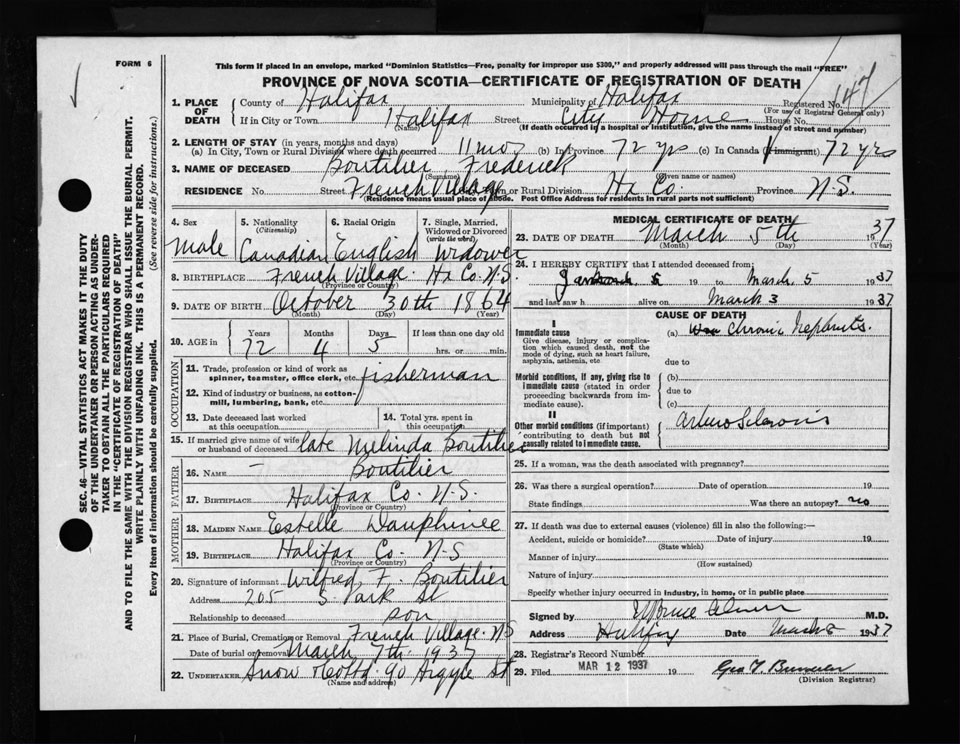 FORM 6
This form if placed in an envelope, marked "Dominion Statistics—Free, penalty for improper use $300," and properly addressed will pass through the mail "FREE"
PROVINCE OF NOVA SCOTIA—CERTIFICATE OF REGISTRATION OF DEATH
147
1. PLACE OF DEATH County of Halifax Municipality of Halifax Registered No.
(For use of Registrar General only)
If in City or Town Halifax Street City Home House No.
(Name) (If death occurred in a hospital or institution, give the name instead of street and number)
2. LENGTH OF STAY (in years, months and days)
(a) In City, Town or Rural Division where death occurred 11 mos (b) In Province 72 yrs (c) In Canada (if immigrant) 72 yrs
3. NAME OF DECEASED Boutilier Frederick
(Surname) (Given name or names)
RESIDENCE No. Street French Village or Rural Division Hx Co. Province N.S.
(Residence means usual place of abode. Post Office Address for residents in rural parts not sufficient)
4. Sex Male
5. Nationality (Citizenship) Canadian
6. Racial Origin English
7. Single, Married, Widowed or Divorced (write the word) Widower
8. BIRTHPLACE French Village. Hx Co. N.S.
(Province or Country)
9. DATE OF BIRTH October 30th 1864
(Month) (Day) (Year)
10. AGE in Years 72 Months 4 Days 5 If less than one day old hrs. or min.
OCCUPATION
11. Trade, profession or kind of work as spinner, teamster, office clerk, etc. fisherman
12. Kind of industry or business, as cotton-mill, lumbering, bank, etc.
13. Date deceased last worked at this occupation
14. Total yrs. spent in this occupation
15. If married give name of wife or husband of deceased late Melinda Boutilier
FATHER
16. NAME — Boutilier
17. BIRTHPLACE Halifax Co. N.S.
(Province or Country)
MOTHER
18. MAIDEN NAME Estelle Dauphinee
19. BIRTHPLACE Halifax Co. N-S
(Province or Country)
20. Signature of informant Wilfred F. Boutilier
Address 205 S Park St
Relationship to deceased son
21. Place of Burial, Cremation or Removal French Village. NS
Date of burial or removal March 7th 1937
22. UNDERTAKER Snow & Co Ltd. 90 Argyle St
(Name and address)
MEDICAL CERTIFICATE OF DEATH
23. DATE OF DEATH March 5th 1937
(Month) (Day) (Year)
24. I HEREBY CERTIFY that I attended deceased from
19 to March. 5 1937
and last saw h alive on March 3 1937
CAUSE OF DEATH
I
Immediate cause
Give disease, injury or complication which caused death, not the mode of dying, such as heart failure, asphyxia, asthenia, etc
(a) Chronic Nephritis.
due to
Morbid conditions, if any, giving rise to immediate cause (stated in order proceeding backwards from immediate cause).
(b)
due to
(c)
II
Other morbid conditions (if important) contributing to death but not causally related to immediate cause.
Arterio Sclerosis
25. If a woman, was the death associated with pregnancy?
26. Was there a surgical operation? Date of operation 19
State findings Was there an autopsy? no
27. If death was due to external causes (violence) fill in also the following:—
Accident, suicide or homicide? Date of injury 19
(State which)
Manner of injury
(How sustained)
Nature of injury
Specify whether injury occurred in industry, in home, or in public place
Signed by M.D.
Address Halifax Date March 8 1937
28. Registrar's Record Number
29. Filed MAR 12 1937 19
(Division Registrar)
SEC. 46—VITAL STATISTICS ACT MAKES IT THE DUTY
OF THE UNDERTAKER OR PERSON ACTING AS UNDER-
TAKER TO OBTAIN ALL THE PARTICULARS REQUIRED
IN THE "CERTIFICATE OF REGISTRATION OF DEATH"
AND TO FILE THE SAME WITH THE DIVISION REGISTRAR WHO SHALL ISSUE THE BURIAL PERMIT.
WRITE PLAINLY WITH UNFADING INK. THIS IS A PERMANENT RECORD.
Every item of information should be carefully supplied. (See reverse side for instructions.)